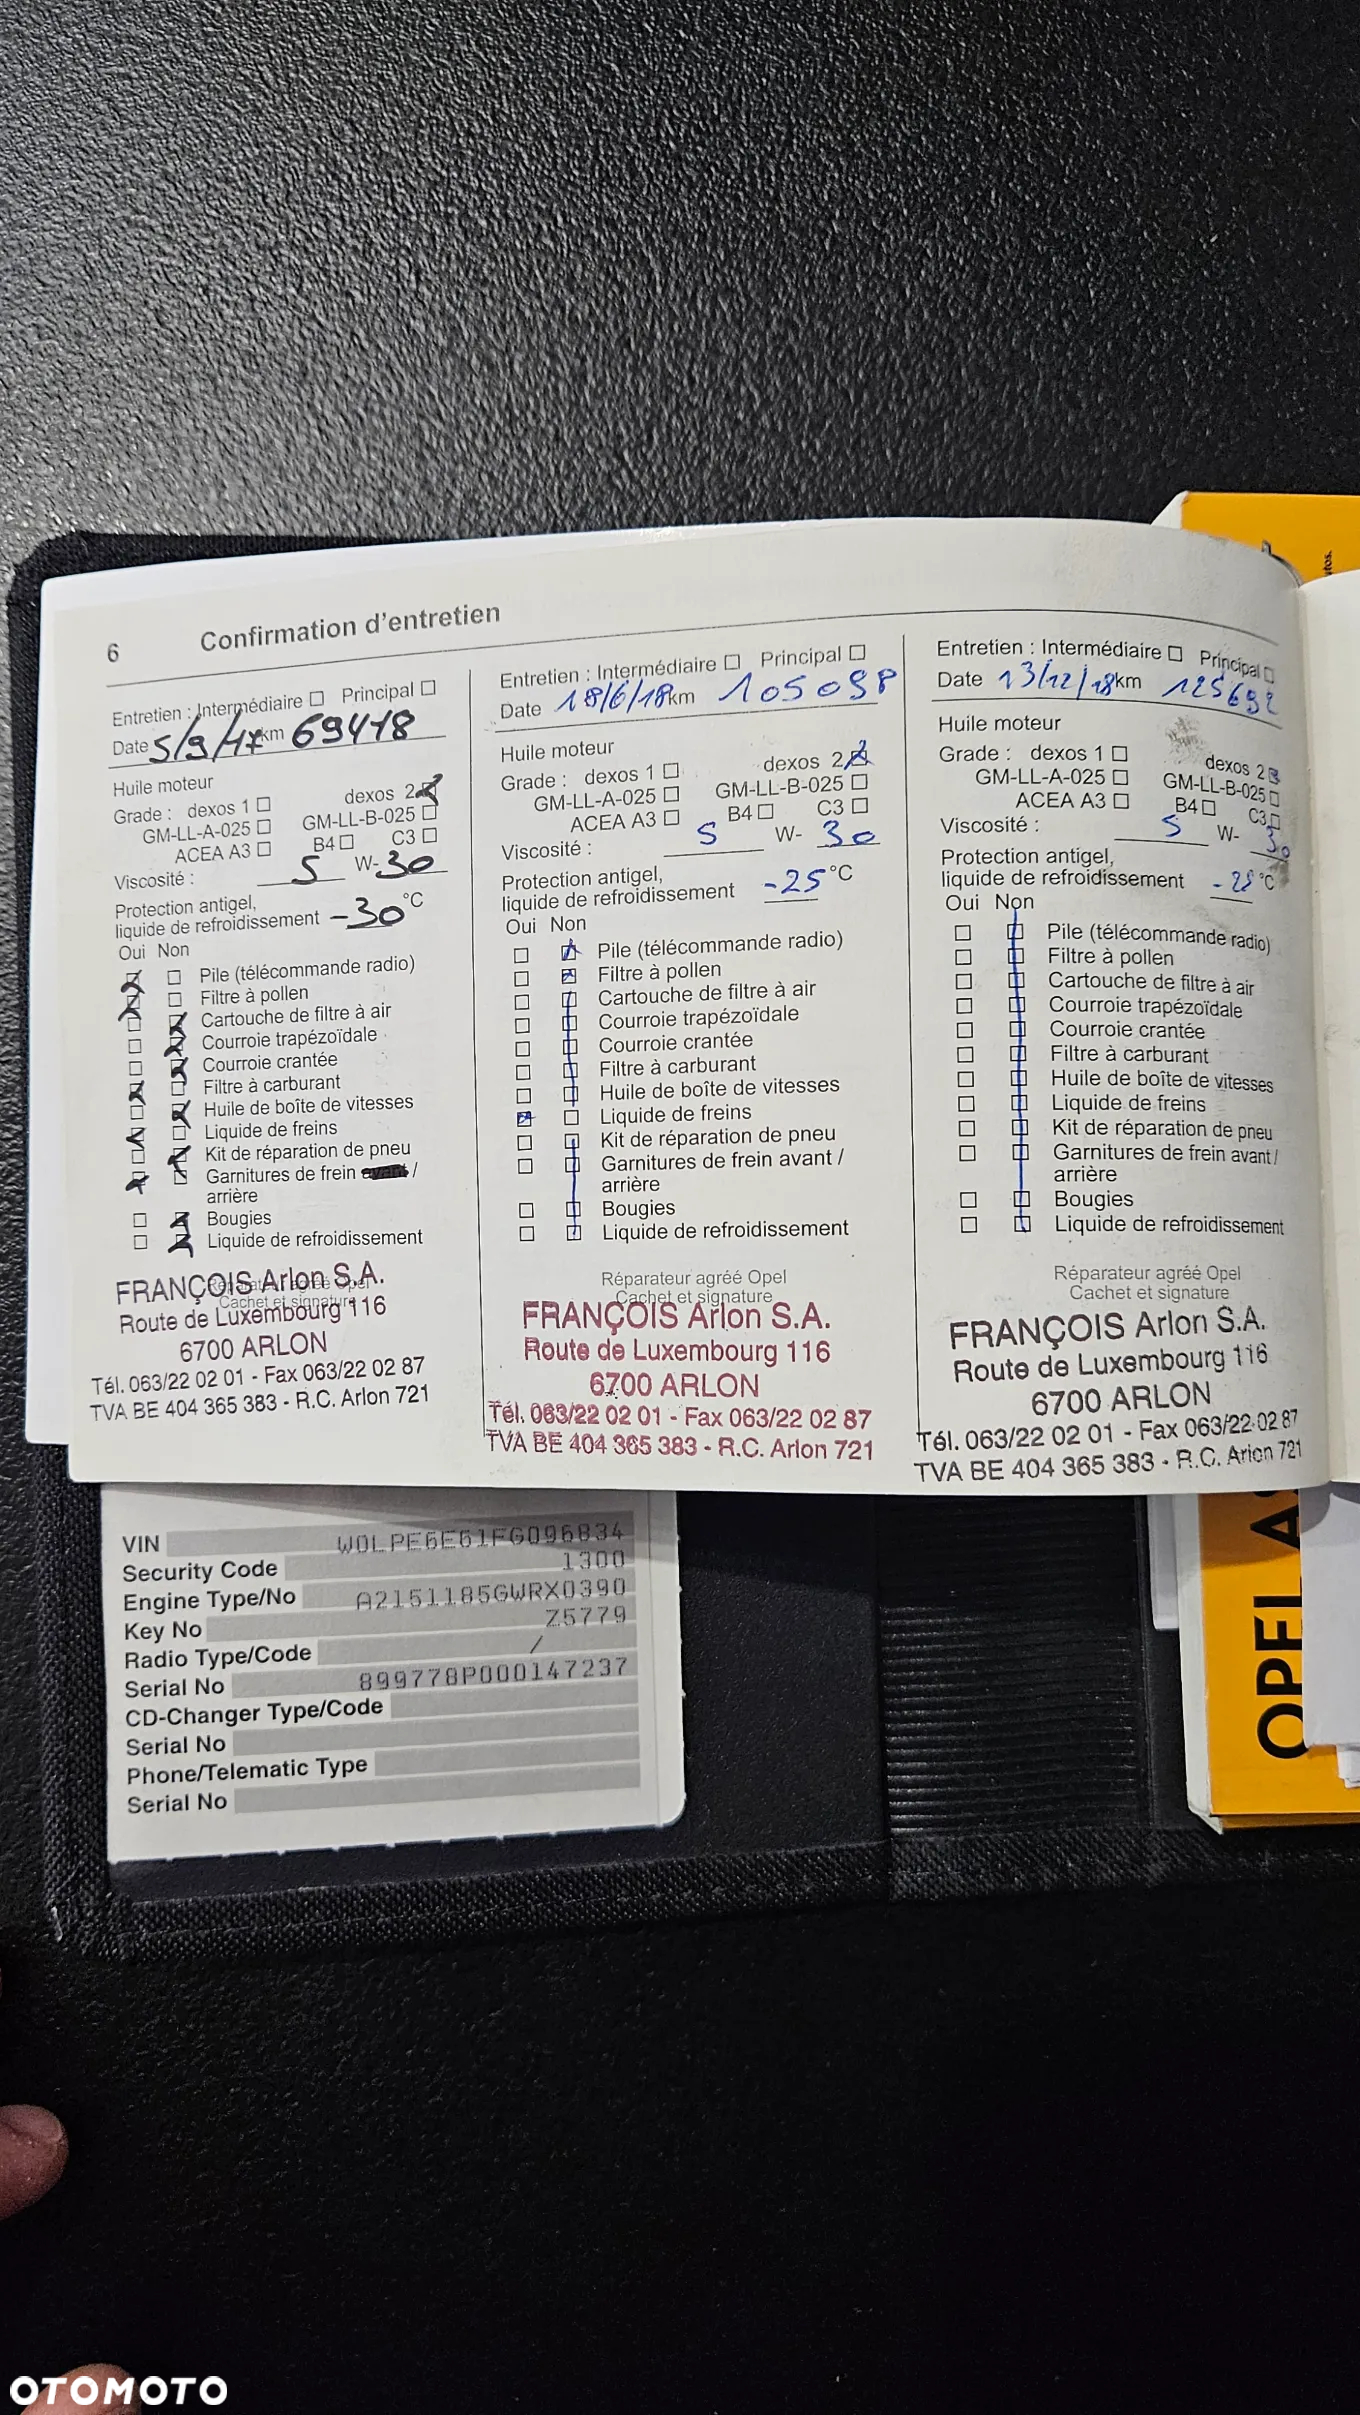 6 Confirmation d'entretien
Entretien : Intermédiaire Principal
Date 5/9/17 km 69418
Huile moteur
Grade : dexos 1 dexos 2
GM-LL-A-025 GM-LL-B-025
ACEA A3 B4 C3
Viscosité : 5 W- 30
Protection antigel,
liquide de refroidissement -30 °C
Oui Non
Pile (télécommande radio)
Filtre à pollen
Cartouche de filtre à air
Courroie trapézoïdale
Courroie crantée
Filtre à carburant
Huile de boîte de vitesses
Liquide de freins
Kit de réparation de pneu
Garnitures de frein avant /
arrière
Bougies
Liquide de refroidissement
Réparateur agréé Opel
Cachet et signature
FRANÇOIS Arlon S.A.
Route de Luxembourg 116
6700 ARLON
Tél. 063/22 02 01 - Fax 063/22 02 87
TVA BE 404 365 383 - R.C. Arlon 721
Entretien : Intermédiaire Principal
Date 18/6/18 km 105098
Huile moteur
Grade : dexos 1 dexos 2
GM-LL-A-025 GM-LL-B-025
ACEA A3 B4 C3
Viscosité : 5 W- 30
Protection antigel,
liquide de refroidissement -25 °C
Oui Non
Pile (télécommande radio)
Filtre à pollen
Cartouche de filtre à air
Courroie trapézoïdale
Courroie crantée
Filtre à carburant
Huile de boîte de vitesses
Liquide de freins
Kit de réparation de pneu
Garnitures de frein avant /
arrière
Bougies
Liquide de refroidissement
Réparateur agréé Opel
Cachet et signature
FRANÇOIS Arlon S.A.
Route de Luxembourg 116
6700 ARLON
Tél. 063/22 02 01 - Fax 063/22 02 87
TVA BE 404 365 383 - R.C. Arlon 721
Entretien : Intermédiaire Principal
Date 13/12/18 km 125692
Huile moteur
Grade : dexos 1 dexos 2
GM-LL-A-025 GM-LL-B-025
ACEA A3 B4 C3
Viscosité : 5 W- 30
Protection antigel,
liquide de refroidissement -28 °C
Oui Non
Pile (télécommande radio)
Filtre à pollen
Cartouche de filtre à air
Courroie trapézoïdale
Courroie crantée
Filtre à carburant
Huile de boîte de vitesses
Liquide de freins
Kit de réparation de pneu
Garnitures de frein avant /
arrière
Bougies
Liquide de refroidissement
Réparateur agréé Opel
Cachet et signature
FRANÇOIS Arlon S.A.
Route de Luxembourg 116
6700 ARLON
Tél. 063/22 02 01 - Fax 063/22 02 87
TVA BE 404 365 383 - R.C. Arlon 721
VIN W0LPE6E61FG096834
Security Code 1300
Engine Type/No A2151185GWRX0390
Key No Z5779
Radio Type/Code /
Serial No 899778P000147237
CD-Changer Type/Code
Serial No
Phone/Telematic Type
Serial No
OPEL
OTOMOTO